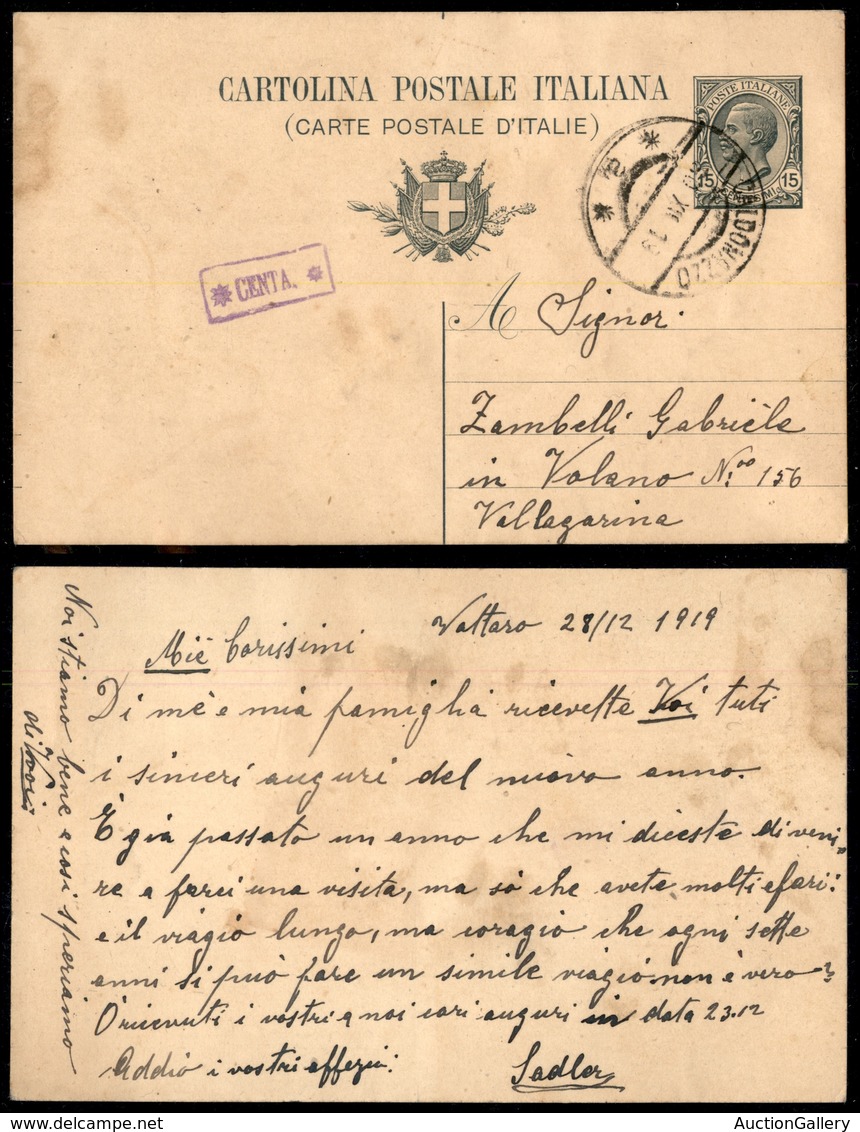 CARTOLINA POSTALE ITALIANA
(CARTE POSTALE D'ITALIE)
POSTE ITALIANE
15 CENTESIMI 15
CALDONAZZO
* CENTA. *
A Signor
Zambelli Gabriele
in Volano N:oo 156
Vallagarina
Vattaro 28/12 1919
Miè Carissimi
Di mè e mia famiglia ricevette Voi tuti
i sinceri auguri del nuovo anno.
È già passato un anno che mi diceste di veni
re a farci una visita, ma sò che avete molti afari:
e il viagio lungo, ma coragio che ogni sette
anni si può fare un simile viagio non è vero?
O ricevuti i vostri a noi cari auguri in data 23.12
Addio i vostri affezi:
Sadler
Noi stiamo bene e così speriamo
di Voi
AuctionGallery